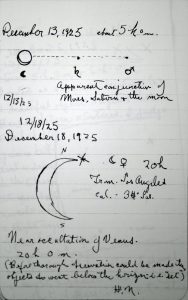 December 13, 1925 about 5 h a.m.
☾ ♄ ♂
Apparent conjunction of
Mars, Saturn & the moon
12/13/25
12/18/25
December 18, 1925
N
☾ ♀ 20h
Los Angeles
Cal. - 3"
S
Near occultation of Venus.
20h 0m.
(Before thorough observation could be made the
objects went below the horizon i.e. set)
H.N.